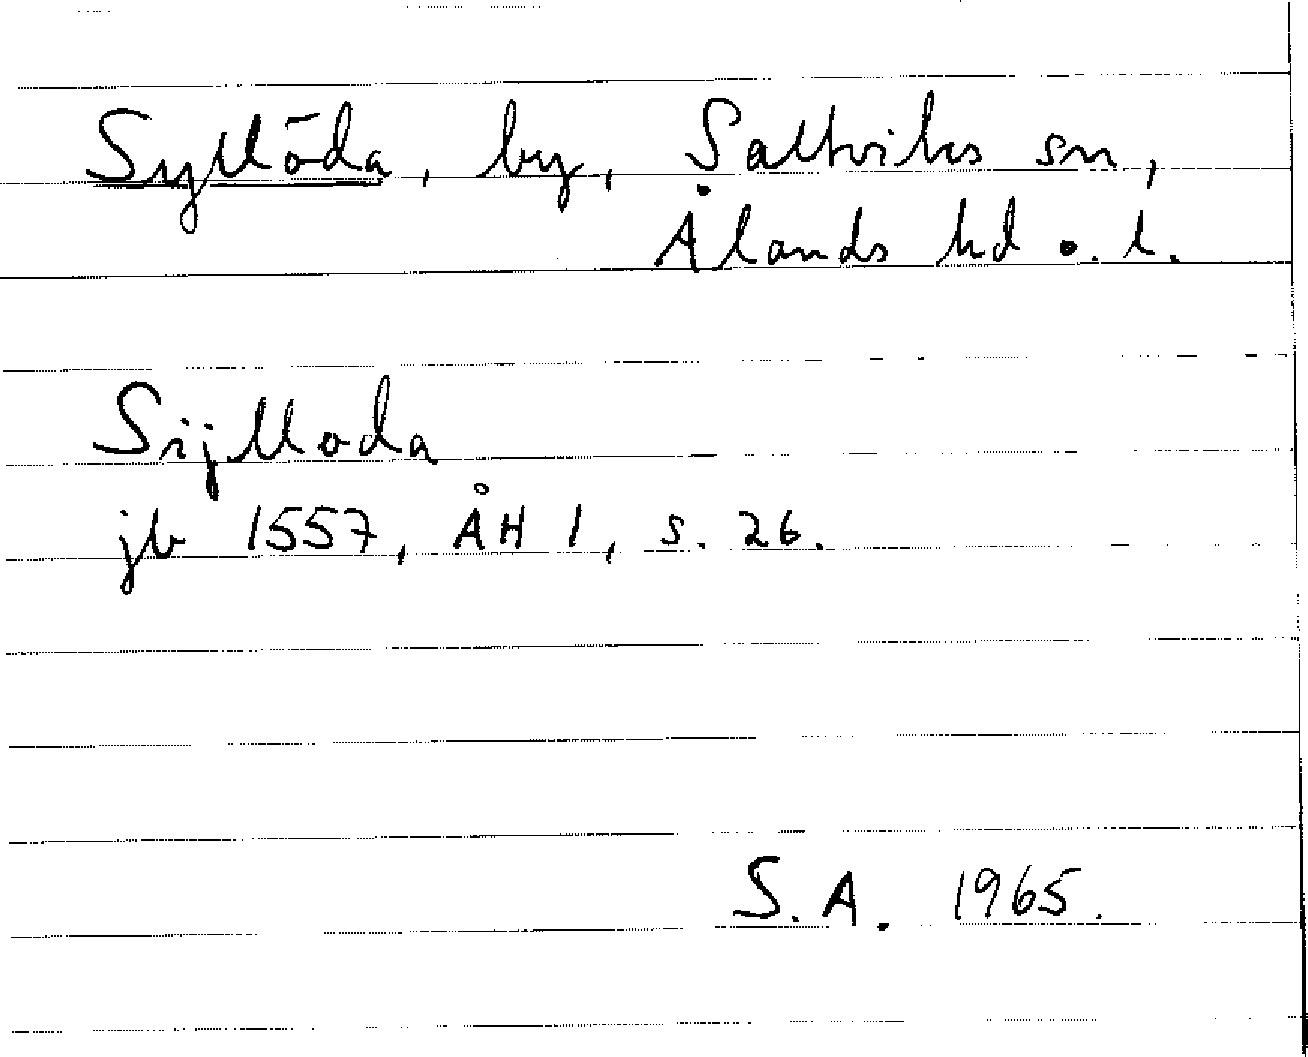 Syllöda, by, Saltviks sn,
Ålands hd o. l.
Sijlloda
jb 1557, ÅH 1, s. 26.
S. A. 1965.